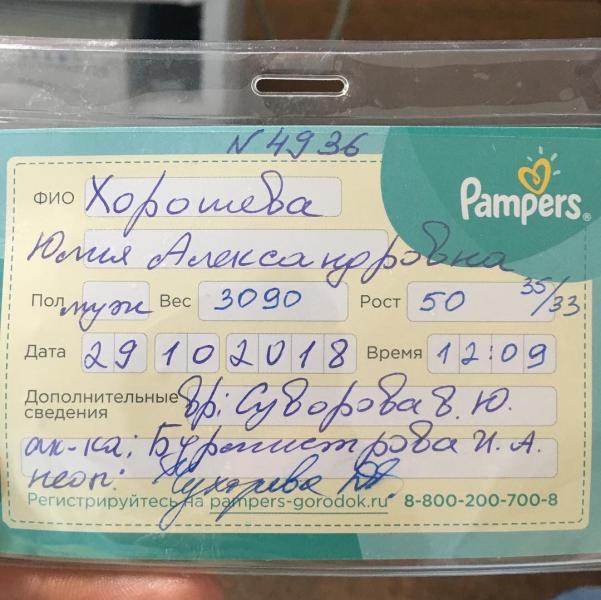 N 4936
Pampers®
ФИО Хорошева
Юлия Александровна
Пол муж Вес 3090 Рост 50 35/33
Дата 29 10 2018 Время 12:09
Дополнительные сведения вр: Суворова В. Ю.
ак-ка: Бурмистрова И. А.
неон:
Регистрируйтесь на pampers-gorodok.ru 8-800-200-700-8